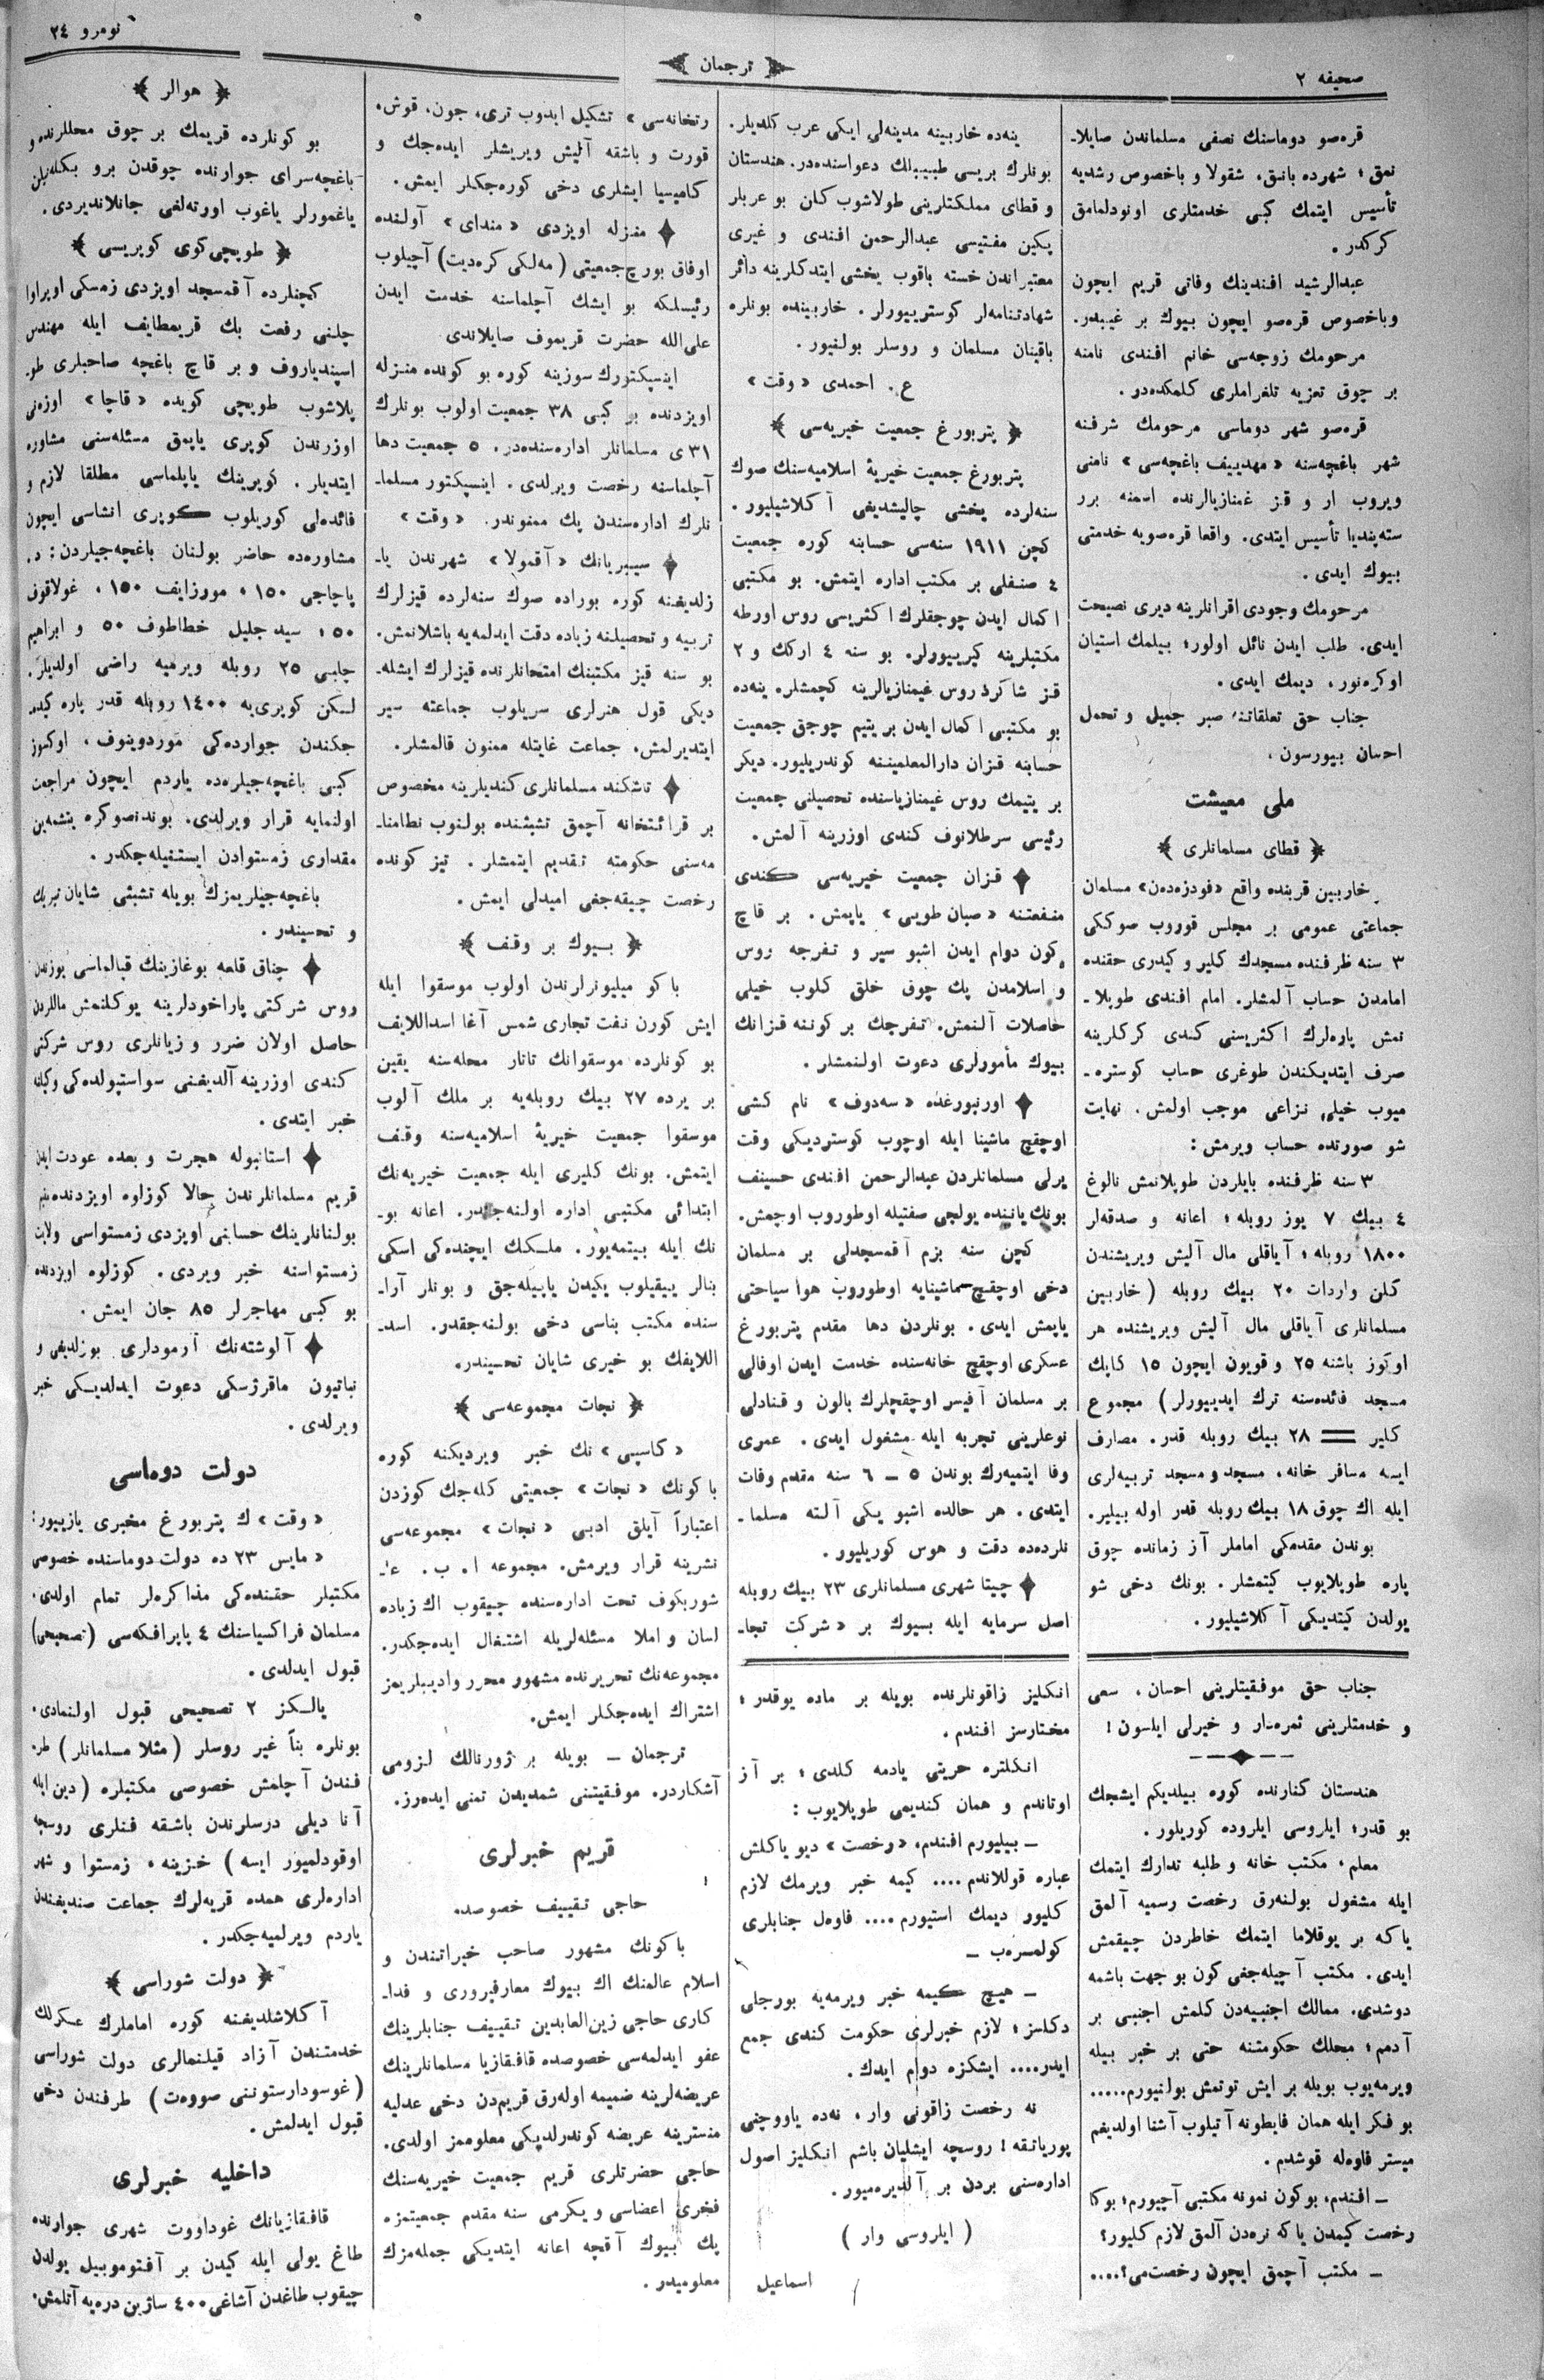 صحیفه ۲
ترجمان
نومرو ۲٤
قره‌صو دوماسنك نصفی مسلماندن صایلا-
نمق ؛ شهرده بانق، شقولا و باخصوص رشدیه
تأسیس ایتمك كبی خدمتلری اونودلمامق
كركدر .
عبدالرشید افندینك وفاتی قریم ایچون
وباخصوص قره‌صو ایچون بیوك بر غیبدر.
مرحومك زوجه‌سی خانم افندی نامنه
بر چوق تعزیه تلغراملری كلمكده‌در .
قره‌صو شهر دوماسی مرحومك شرفنه
شهر باغچه‌سنه «مهدییف باغچه‌سی» نامنی
ویروب ار و قز غمنازیالرنده اسمنه برر
سته‌پندیا تأسیس ایتدی. واقعا قره‌صویه خدمتی
بیوك ایدی .
مرحومك وجودی اقرانلرینه دیری نصیحت
ایدی. طلب ایدن نائل اولور؛ بیلمك استیان
اوكره‌نور، دیمك ایدی .
جناب حق تعلقاتنه صبر جمیل و تحمل
احسان بیورسون .
ملی معیشت
﴿ قطای مسلمانلری ﴾
خاربین قربنده واقع «فودزه‌دەن» مسلمان
جماعتی عمومی بر مجلس قوروب صوككی
۳ سنه ظرفنده مسجدك كلیر و كیدری حقنده
امامدن حساب آلمشلر. امام افندی طوپلا-
نمش پاره‌لرك اكثریسنی كندی كركلرینه
صرف ایتدیكندن طوغری حساب كوستره-
میوب خیلی نزاعی موجب اولمش . نهایت
شو صورتده حساب ویرمش :
۳ سنه ظرفنده بایلردن طوپلانمش نالوغ
٤ بیك ۷ یوز روبله ؛ اعانه و صدقه‌لر
۱۸۰۰ روبله ؛ آیاقلی مال آلیش ویریشندن
كلن واردات ۲۰ بیك روبله (خاربین
مسلمانلری آیاقلی مال آلیش ویریشنده هر
اوكوز باشنه ۲۵ و قویون ایچون ۱۵ كاپك
مسجد فائده‌سنه ترك ایدییورلر) مجموع
كلیر = ۲۸ بیك روبله قدر . مصارف
ایسه مسافر خانه، مسجد و مسجد تربیه‌لری
ایله اك چوق ۱۸ بیك روبله قدر اوله بیلیر.
بوندن مقدمكی اماملر آز زمانده چوق
پاره طوپلایوب كیتمشلر . بونك دخی شو
یولدن كیتدیكی آكلاشیلیور .
جناب حق موفقیتلرینی احسان ، سعی
و خدمتلرینی ثمره‌دار و خیرلی ایلسون !
هندستان كنارنده كوره بیلدیكم ایشجك
بو قدر؛ ایلروسی ایلروده كوریلور .
معلم، مكتب خانه و طلبه تدارك ایتمك
ایله مشغول بولنه‌رق رخصت رسمیه آلمق
یا كه بر یوقلاما ایتمك خاطردن چیقمش
ایدی . مكتب آچیله‌جغی كون بو جهت باشمه
دوشدی. ممالك اجنبیه‌دن كلمش اجنبی بر
آدمم ؛ محلك حكومتنه حتی بر خبر بیله
ویرمه‌یوب بویله بر ایش توتمش بولنیورم.....
بو فكر ایله همان فایطونه آتیلوب آشنا اولدیغم
میستر فاوه‌له قوشدم .
ـ افندم، بوكون نمونه مكتبی آچیورم؛ بوكا
رخصت كیمدن یا كه نره‌دن آلمق لازم كلیور؟
ـ مكتب آچمق ایچون رخصت‌می؟....
ینه‌ده خاربینه مدینه‌لی ایكی عرب كلدیلر.
بونلرك بریسی طبیب‌لك دعواسنده‌در. هندستان
و قطای مملكتلرینی طولاشوب كلن بو عربلر
پكین مفتیسی عبدالرحمن افندی و غیری
معتبراندن خسته باقوب یخشی ایتدكلرینه دائر
شهادتنامه‌لر كوستریپورلر . خاربینده بونلره
باقینان مسلمان و روسلر بولنیور .
ع. احمدی «وقت»
﴿ پتربورغ جمعیت خیریه‌سی ﴾
پتربورغ جمعیت خیریۀ اسلامیه‌سنك صوك
سنه‌لرده یخشی چالیشدیغی آكلاشیلیور .
كچن ۱۹۱۱ سنه‌سی حسابنه كوره جمعیت
٤ صنفلی بر مكتب اداره ایتمش. بو مكتبی
اكمال ایدن چوجقلرك اكثریسی روس اورطه
مكتبلرینه كیرییورلر. بو سنه ٤ اركك و ۲
قز شاكرد روس غیمنازیالرینه كچمشلر. ینه‌ده
بو مكتبی اكمال ایدن بر یتیم چوجق جمعیت
حسابنه قزان دارالمعلمیننه كوندریلیور. دیكر
بر یتیمك روس غیمنازیاسنده تحصیلنی جمعیت
رئیسی سرطلانوف كندی اوزرینه آلمش.
قزان جمعیت خیریه‌سی كندی
منفعتنه «صبان طویی» یاپمش . بر قاچ
كون دوام ایدن اشبو سیر و تفرجه روس
و اسلامدن پك چوق خلق كلوب خیلی
حاصلات آلنمش. تفرجك بر كوننه قزانك
بیوك مأمورلری دعوت اولنمشلر .
اورنبورغده «سه‌دوف» نام كشی
اوچقچ ماشینا ایله اوچوب كوستردیكی وقت
یرلی مسلمانلردن عبدالرحمن افندی حسینف
بونك یانینده یولجی صفتیله اوطوروب اوچمش.
كچن سنه بزم آقمسجدلی بر مسلمان
دخی اوچقچ ماشینایه اوطوروب هوا سیاحتی
یاپمش ایدی . بونلردن دها مقدم پتربورغ
عسكری اوچقچ خانه‌سنده خدمت ایدن اوفالی
بر مسلمان آفیس اوچقچلرك بالون و قنادلی
نوعلرینی تجربه ایله مشغول ایدی . عمری
وفا ایتمیه‌رك بوندن ۵ ـ ٦ سنه مقدم وفات
ایتدی . هر حالده اشبو یكی آلته مسلما-
نلرده‌ده دقت و هوس كوریلیور .
چیتا شهری مسلمانلری ۲۳ بیك روبله
اصل سرمایه ایله بسیوك بر «شركت تجا-
انكلیز زاقونلرنده بویله بر ماده یوقدر ؛
مختارسز افندم .
انكلتره حریتی یادمه كلدی ؛ بر آز
اوتاندم و همان كندیمی طوپلایوب :
ـ بیلیورم افندم، «رخصت» دیو یاكلش
عباره قوللاندم .... كیمه خبر ویرمك لازم
كلیور دیمك استیورم .... فاوه‌ل جنابلری
كولمسره‌ب ـ
ـ هیچ كیمه خبر ویرمه‌یه بورجلی
دكلسز ؛ لازم خبرلری حكومت كندی جمع
ایدر.... ایشكزه دوام ایدك .
نه رخصت زاقونی وار ، نه‌ده یاووچنی
پوریاتقه ! روسچه ایشلیان باشم انكلیز اصول
اداره‌سنی بردن بر آلدیره‌میور .
( ایلروسی وار )
اسماعیل
رتخانه‌سی» تشكیل ایدوب تری، جون، قوش،
قورت و باشقه آلیش ویریشلر ایده‌جك و
كامیسیا ایشلری دخی كوره‌جكلر ایمش .
منزله اویزدی «مندای» آولنده
اوفاق بورچ جمعیتی (مه‌لكی كره‌دیت) آچیلوب
رئیسلكه بو ایشك آچلماسنه خدمت ایدن
علی‌الله حضرت قریموف صایلاندی
اینسپكتورك سوزینه كوره بو كونده منزله
اویزدنده بو كبی ۳۸ جمعیت اولوب بونلرك
۳۱ ی مسلمانلر اداره‌سنده‌در. ۵ جمعیت دها
آچلماسنه رخصت ویرلدی . اینسپكتور مسلما-
نلرك اداره‌سندن پك ممنوندر. «وقت»
سیبریانك «آقمولا» شهرندن یا-
زلدیغنه كوره بوراده صوك سنه‌لرده قیزلرك
تربیه و تحصیلنه زیاده دقت ایدلمه‌یه باشلانمش.
بو سنه قیز مكتبنك امتحانلرنده قیزلرك ایشله-
دیكی قول هنرلری سریلوب جماعته سیر
ایتدیرلمش. جماعت غایتله ممنون قالمشلر.
تاشكند مسلمانلری كندیلرینه مخصوص
بر قرائتخانه آچمق تشبثنده بولنوب نظامنا-
مه‌سنی حكومته تقدیم ایتمشلر . تیز كونده
رخصت چیقه‌جغی امیدلی ایمش .
﴿ بیوك بر وقف ﴾
باكو میلیونرلرندن اولوب موسقوا ایله
ایش كورن نفت تجاری شمس آغا اسداللایف
بو كونلرده موسقوانك تاتار محله‌سنه یقین
بر یرده ۲۷ بیك روبله‌یه بر ملك آلوب
موسقوا جمعیت خیریۀ اسلامیه‌سنه وقف
ایتمش. بونك كلیری ایله جمعیت خیریه‌نك
ابتدائی مكتبی اداره اولنه‌جقدر. اعانه بو-
نك ایله بیتمه‌یور. ملكك ایچنده‌كی اسكی
بنالر ییقیلوب یكیدن یاپیله‌جق و بونلر آرا-
سنده مكتب بناسی دخی بولنه‌جقدر. اسد-
اللایفك بو خیری شایان تحسیندر.
﴿ نجات مجموعه‌سی ﴾
«كاسپی» نك خبر ویردیكنه كوره
باكونك «نجات» جمعیتی كله‌جك كوزدن
اعتباراً آیلق ادبی «نجات» مجموعه‌سی
نشرینه قرار ویرمش. مجموعه ا. ب. ع-
شوربكوف تحت اداره‌سنده چیقوب اك زیاده
لسان و املا مسئله‌لریله اشتغال ایده‌جكدر.
مجموعه‌نك تحریرنده مشهور محرر وادیبلریمز
اشتراك ایده‌جكلر ایمش.
ترجمان ـ بویله بر ژورنالك لزومی
آشكاردر. موفقیتنی شمدیدن تمنی ایده‌رز.
قریم خبرلری
حاجی تقییف خصوصده
باكونك مشهور صاحب خیراتندن و
اسلام عالمنك اك بیوك معارفپروری و فدا-
كاری حاجی زین‌العابدین تقییف جنابلرینك
عفو ایدلمه‌سی خصوصده قافقازیا مسلمانلرینك
عریضه‌لرینه ضمیمه اوله‌رق قریم‌دن دخی عدلیه
منسترینه عریضه كوندرلدیكی معلوممز اولدی.
حاجی حضرتلری قریم جمعیت خیریه‌سنك
فخری اعضاسی و یكرمی سنه مقدم جمعیتمزه
پك بیوك آقچه اعانه ایتدیكی جمله‌مزك
معلومیدر .
﴿ هوالر ﴾
بو كونلرده قریمك بر چوق محللرنده و
باغچه‌سرای جوارنده چوقدن برو بكله‌نیلن
یاغمورلر یاغوب اورته‌لغی جانلاندیردی.
﴿ طوپچی‌كوی كوپریسی ﴾
كچنلرده آقمسجد اویزدی زمسكی اوپراوا
چلنی رفعت بك قریمطایف ایله مهندس
اسپندیاروف و بر قاچ باغچه صاحبلری طو-
پلاشوب طوپچی كویده «قاچا» اوزه‌نی
اوزرندن كوپری یاپمق مسئله‌سنی مشاوره
ایتدیلر . كوپرینك یاپلماسی مطلقا لازم و
فائده‌لی كوریلوب كوپری انشاسی ایچون
مشاوره‌ده حاضر بولنان باغچه‌جیلردن: د.
پاچاجی ۱۵۰ ، مورزایف ۱۵۰ ، غولاقوف
۵۰ ؛ سید جلیل خطاطوف ۵۰ و ابراهیم
چلبی ۲۵ روبله ویرمیه راضی اولدیلر.
لكن كوپری‌یه ۱٤۰۰ روبله قدر پاره كیده-
جكندن جوارده‌كی موردوینوف ، اوكسوز
كبی باغچه‌جیلره‌ده یاردم ایچون مراجعت
اولنمایه قرار ویرلدی. بوندنصوكره یتشمه‌ین
مقداری زمستوادن ایستنیله‌جكدر .
باغچه‌جیلریمزك بویله تشبثی شایان تبریك
و تحسیندر .
چناق قلعه بوغازینك قپالماسی یوزندن
روس شركتی پاراخودلرینه یوكلنمش ماللردن
حاصل اولان ضرر و زیانلری روس شركتی
كندی اوزرینه آلدیغنی سواستپولده‌كی وكیلنه
خبر ایتدی .
استانبوله هجرت و بعده عودت ایدن
قریم مسلمانلرندن حالا كوزلوه اویزدنده مقیم
بولنانلرینك حسابنی اویزدی زمستواسی ولایت
زمستواسنه خبر ویردی . كوزلوه اویزدنده
بو كبی مهاجرلر ۸۵ جان ایمش .
آلوشته‌نك آرمودلری بوزلدیغی و
نباتیون ماقرژسكی دعوت ایدلدیكی خبر
ویرلدی .
دولت دوماسی
«وقت» ك پتربورغ مخبری یازییور:
«مایس ۲۳ ده دولت دوماسنده خصوصی
مكتبلر حقنده‌كی مذاكره‌لر تمام اولدی.
مسلمان فراكسیاسنك ٤ یاپرافكه‌سی (تصحیحی)
قبول ایدلدی .
یالكز ۲ تصحیحی قبول اولنمادی.
بونلره بناً غیر روسلر (مثلا مسلمانلر) طر-
فندن آچلمش خصوصی مكتبلره (دین ایله
آنا دیلی درسلرندن باشقه فنلری روسچه
اوقودلمیور ایسه) خزینه، زمستوا و شهر
اداره‌لری همده قریه‌لرك جماعت صندیغندن
یاردم ویرلمیه‌جكدر .
﴿ دولت شوراسی ﴾
آكلاشلدیغنه كوره اماملرك عسكرلك
خدمتندن آزاد قیلنمالری دولت شوراسی
(غوسودارستوننی صووه‌ت) طرفندن دخی
قبول ایدلمش .
داخلیه خبرلری
قافقازیانك غوداووت شهری جوارنده
طاغ یولی ایله كیدن بر آفتوموبیل یولدن
چیقوب طاغدن آشاغی ٤۰۰ ساژین دره‌یه آتلمش.